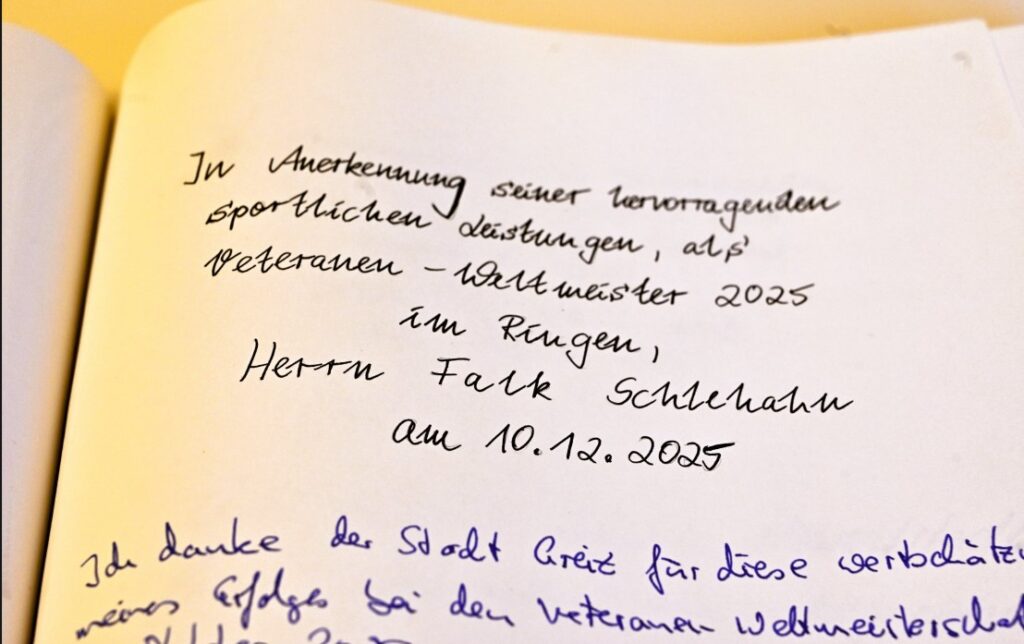 In Anerkennung seiner hervorragenden
sportlichen Leistungen, als
Veteranen – Weltmeister 2025
im Ringen,
Herrn Falk Schlehahn
am 10.12.2025
Ich danke der Stadt Greiz für diese
meines Erfolges bei den Veteranen